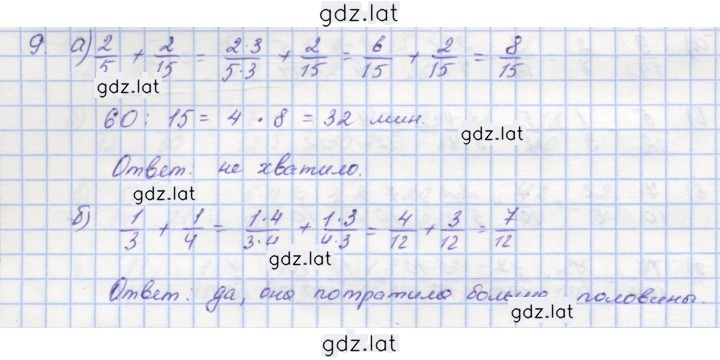 gdz.lat
9. а) 2/5 + 2/15 = 2·3/5·3 + 2/15 = 6/15 + 2/15 = 8/15
gdz.lat
60 : 15 = 4 · 8 = 32 мин.
gdz.lat
Ответ: не хватило.
gdz.lat
б) 1/3 + 1/4 = 1·4/3·4 + 1·3/4·3 = 4/12 + 3/12 = 7/12
gdz.lat
Ответ: да, она потратила больше половины.
gdz.lat
gdz.lat